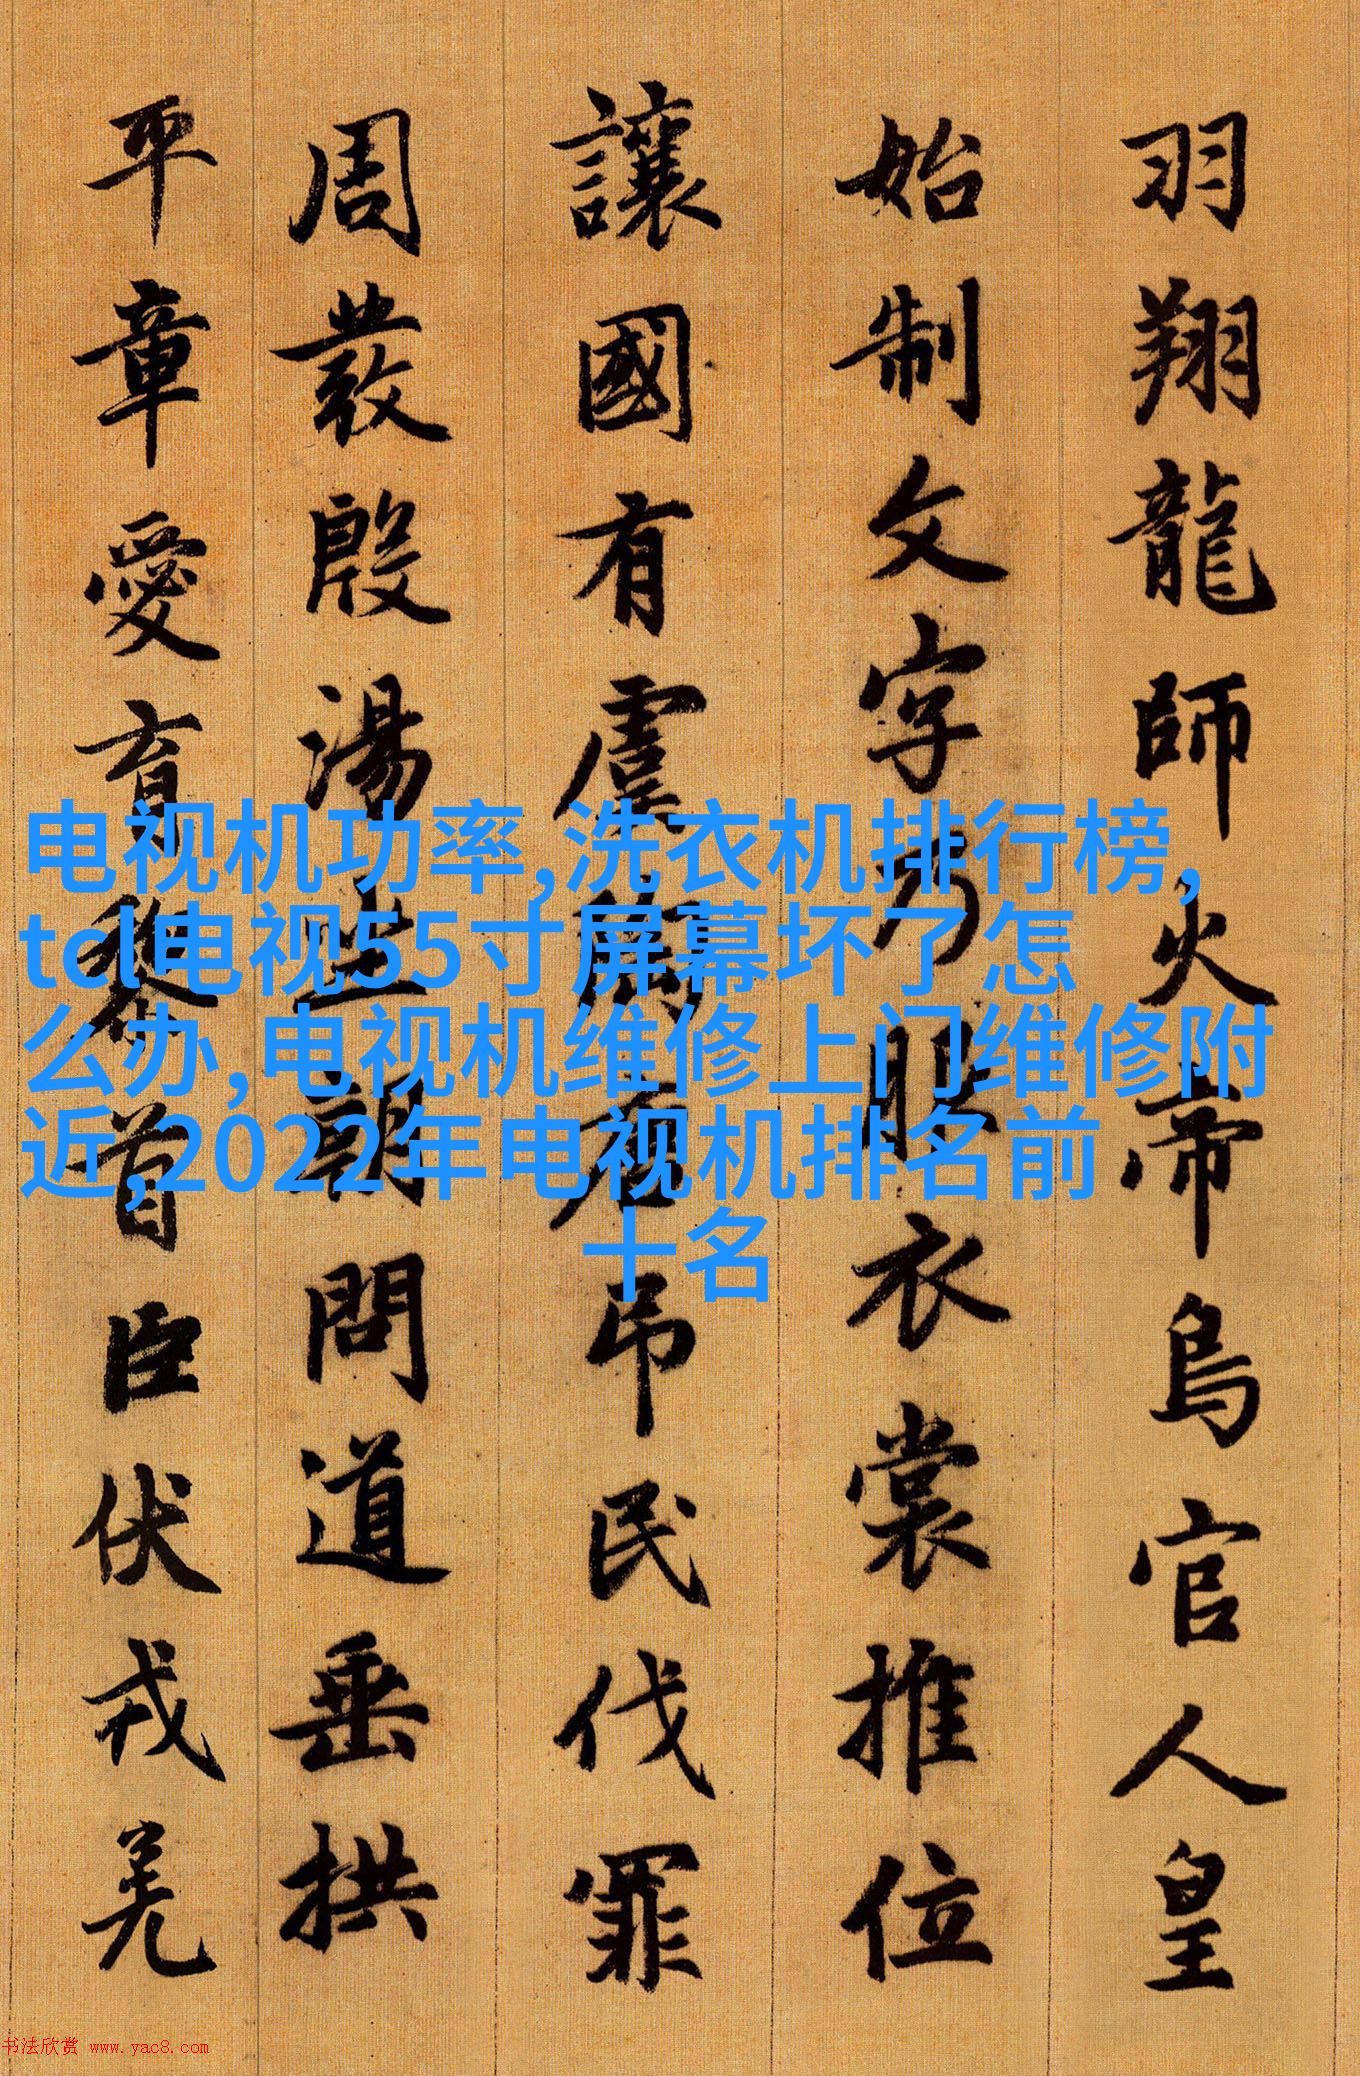 羽翔龍師火帝鳥官人皇
始制文字乃服衣裳推位
讓國有虞陶唐吊民伐罪
周發殷湯坐朝問道垂拱
平章愛育黎首臣伏戎羌
电视机功率,洗衣机排行榜,
tcl电视55寸屏幕坏了怎
么办,电视机维修上门维修附
近,2022年电视机排名前
十名
书法欣赏 www.yac8.com